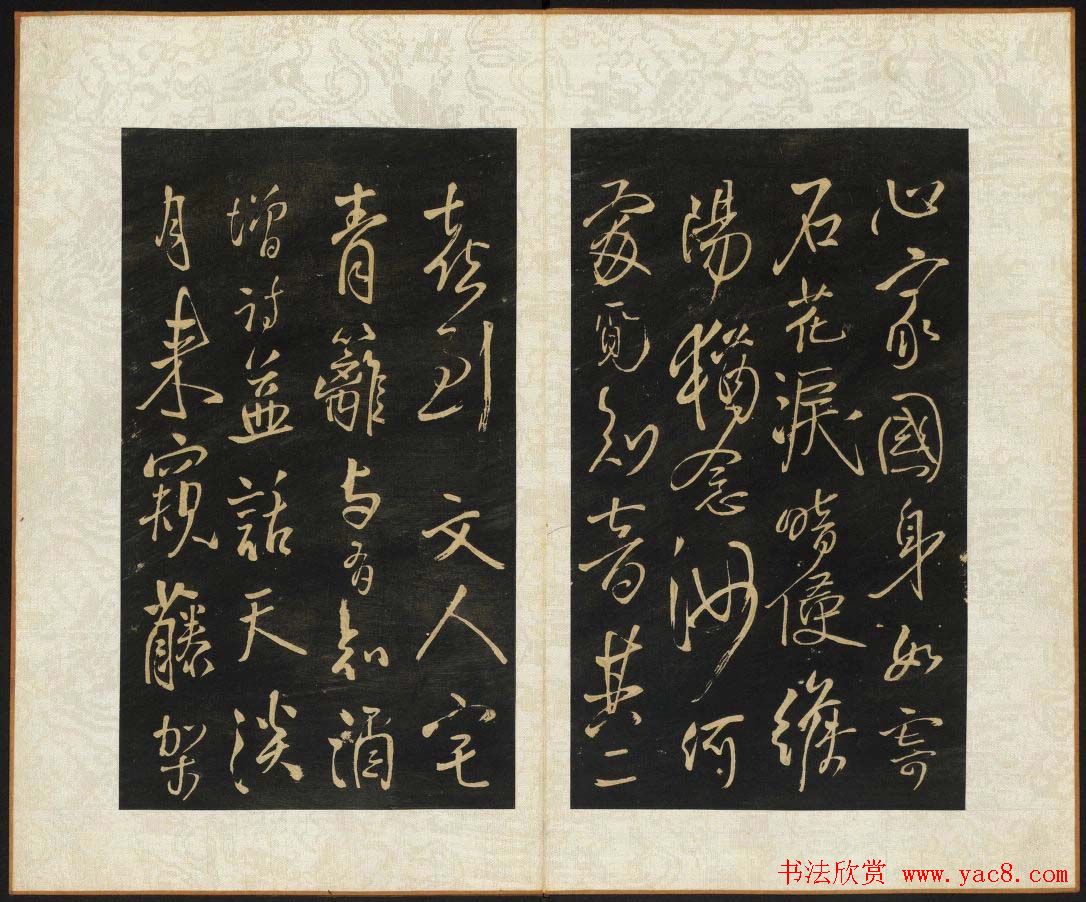 心家國身如寄
石花淚暗侵
陽猶念汝何
處覓知音其二
喜到文人宅
青籬与有知酒
增詩並話天淡
月来窺藤架
书法欣赏 www.yac8.com